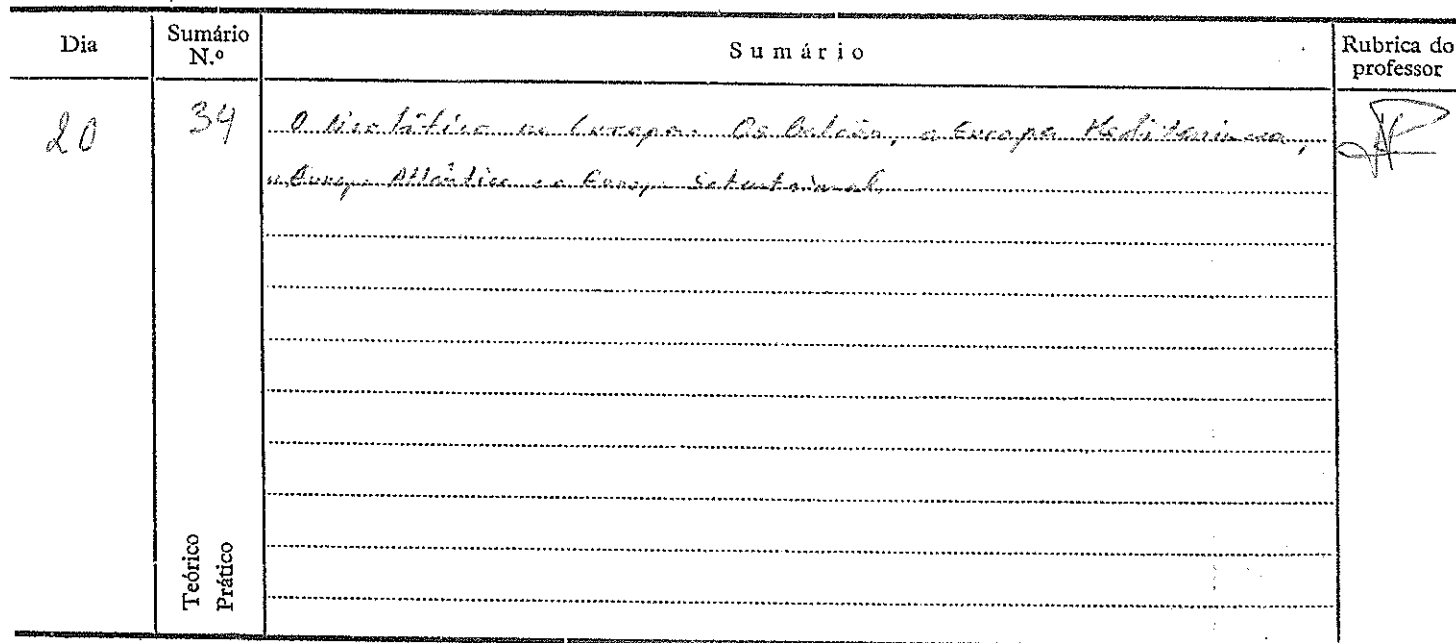 Dia
Sumário N.º
Sumário
Rubrica do professor
20
34
O Neolítico na Europa. Os Balcãs, a Europa Mediterrânea,
a Europa Atlântica e a Europa Setentrional.
Teórico
Prático